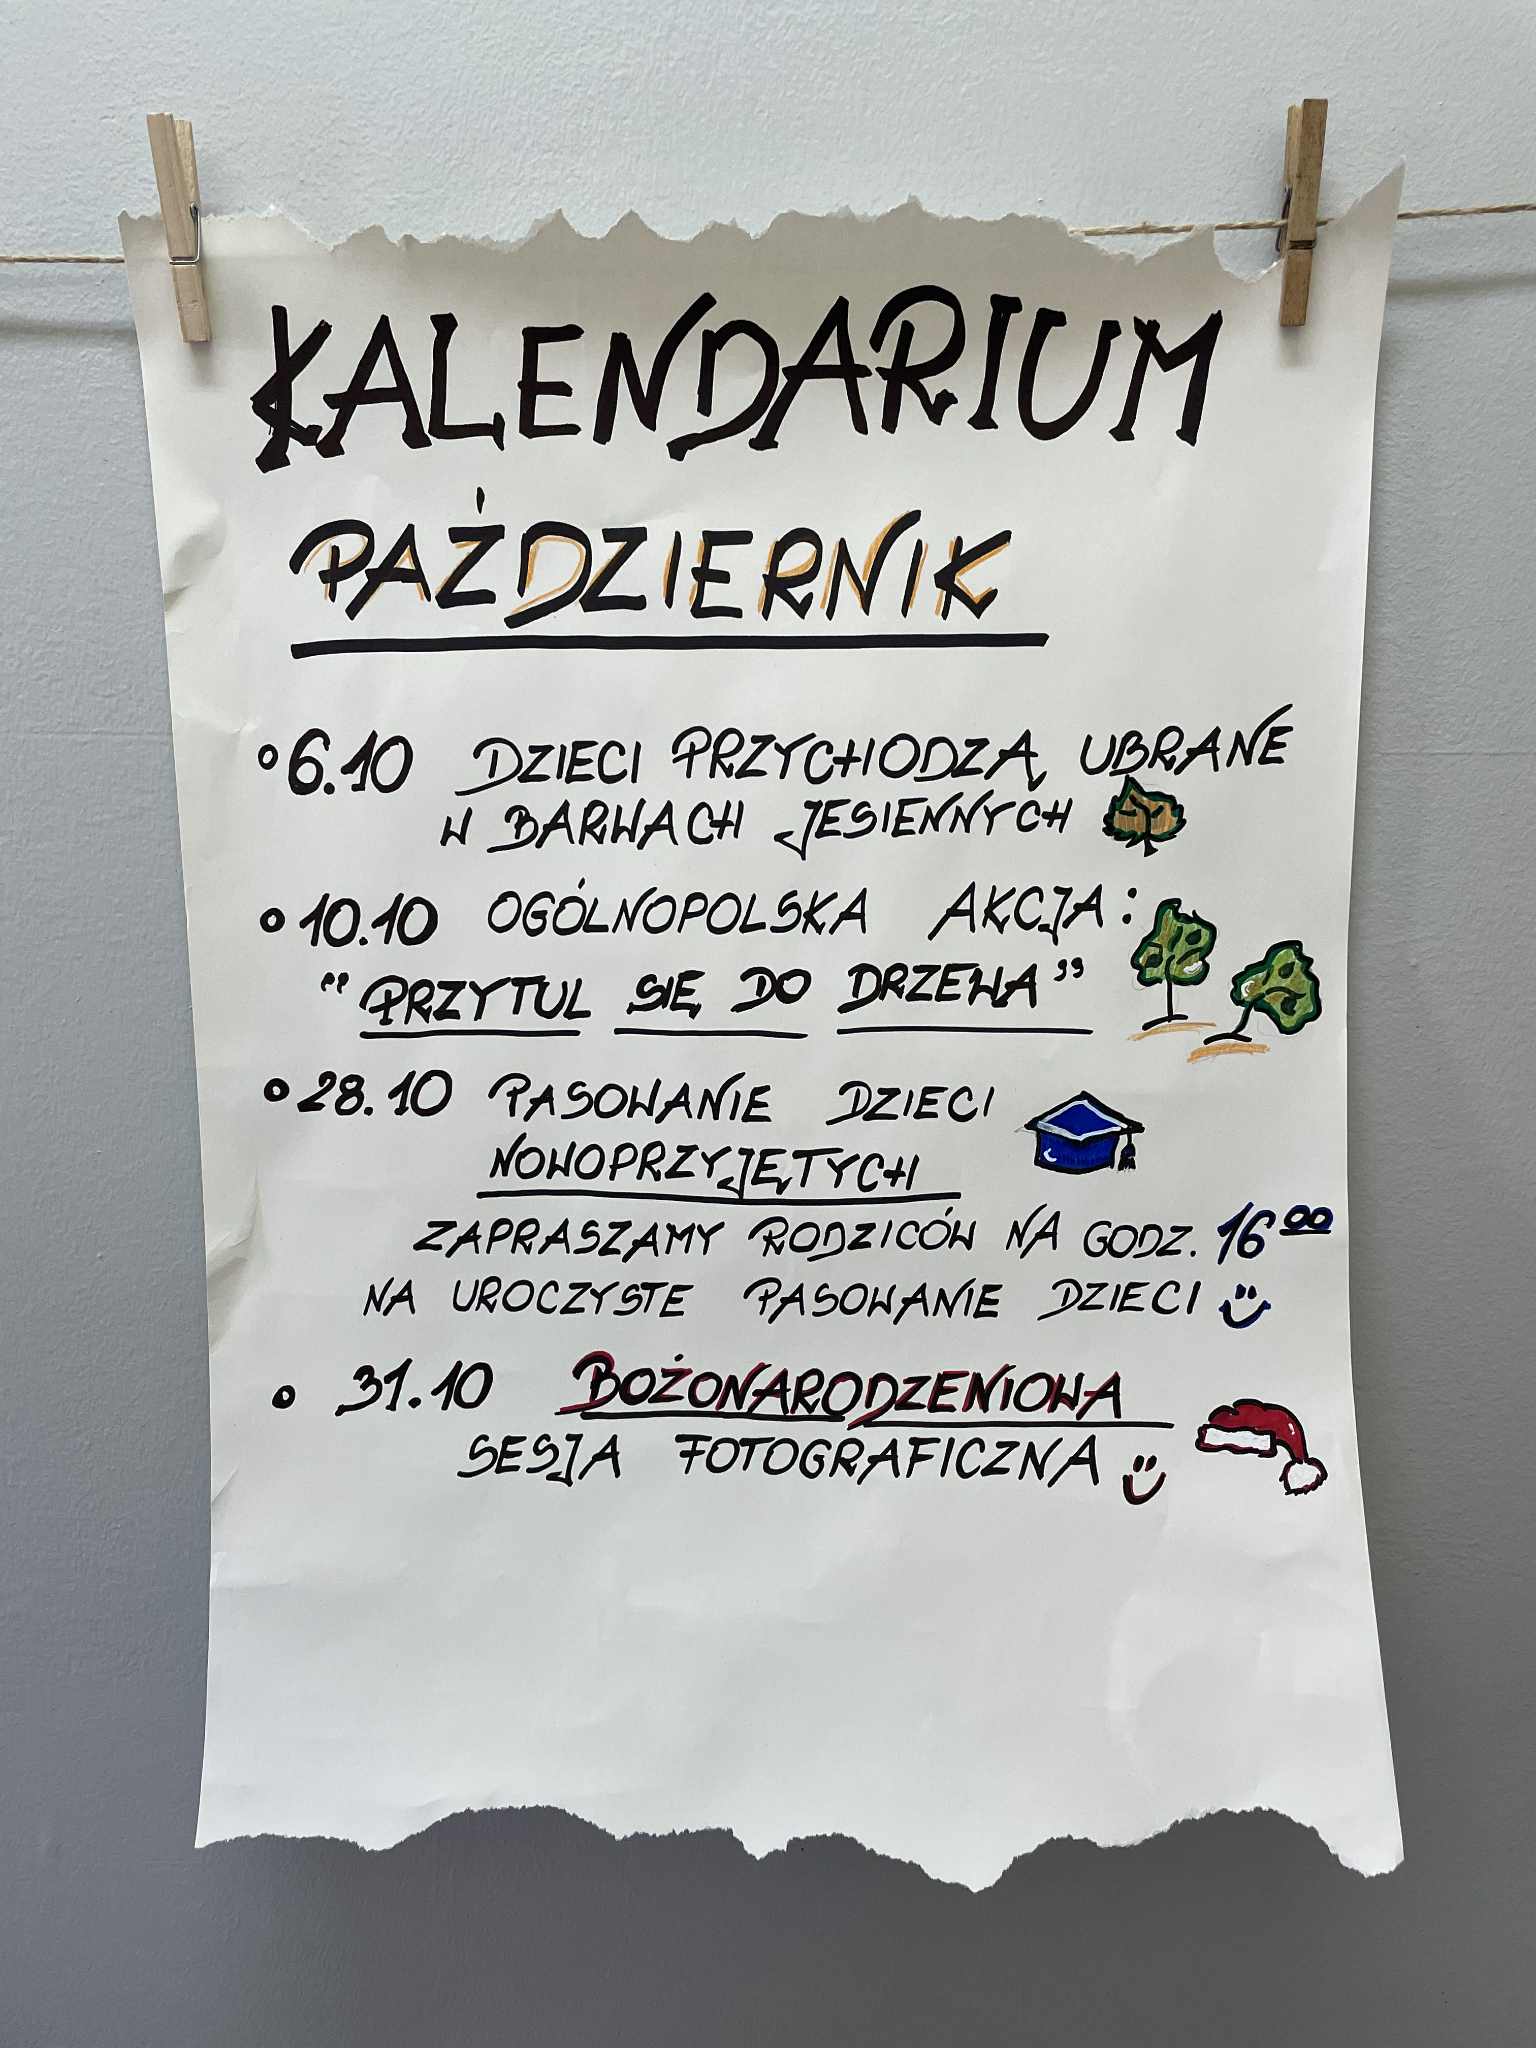 KALENDARIUM
PAŹDZIERNIK
6.10 DZIECI PRZYCHODZĄ UBRANE
W BARWACH JESIENNYCH
10.10 OGÓLNOPOLSKA AKCJA:
"PRZYTUL SIĘ DO DRZEWA"
28.10 PASOWANIE DZIECI
NOWOPRZYJĘTYCH
ZAPRASZAMY RODZICÓW NA GODZ. 16⁰⁰
NA UROCZYSTE PASOWANIE DZIECI
31.10 BOŻONARODZENIOWA
SESJA FOTOGRAFICZNA